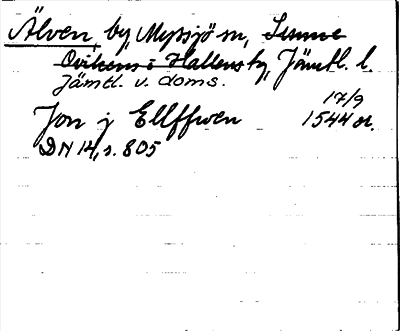 Älven, by, Myssjö sn, Sunne
Ovikens o Hallens tg, Jämtl. l.
Jämtl. v. doms.
17/9
Jon j Ellffwen 1544 or.
DN 14, s. 805